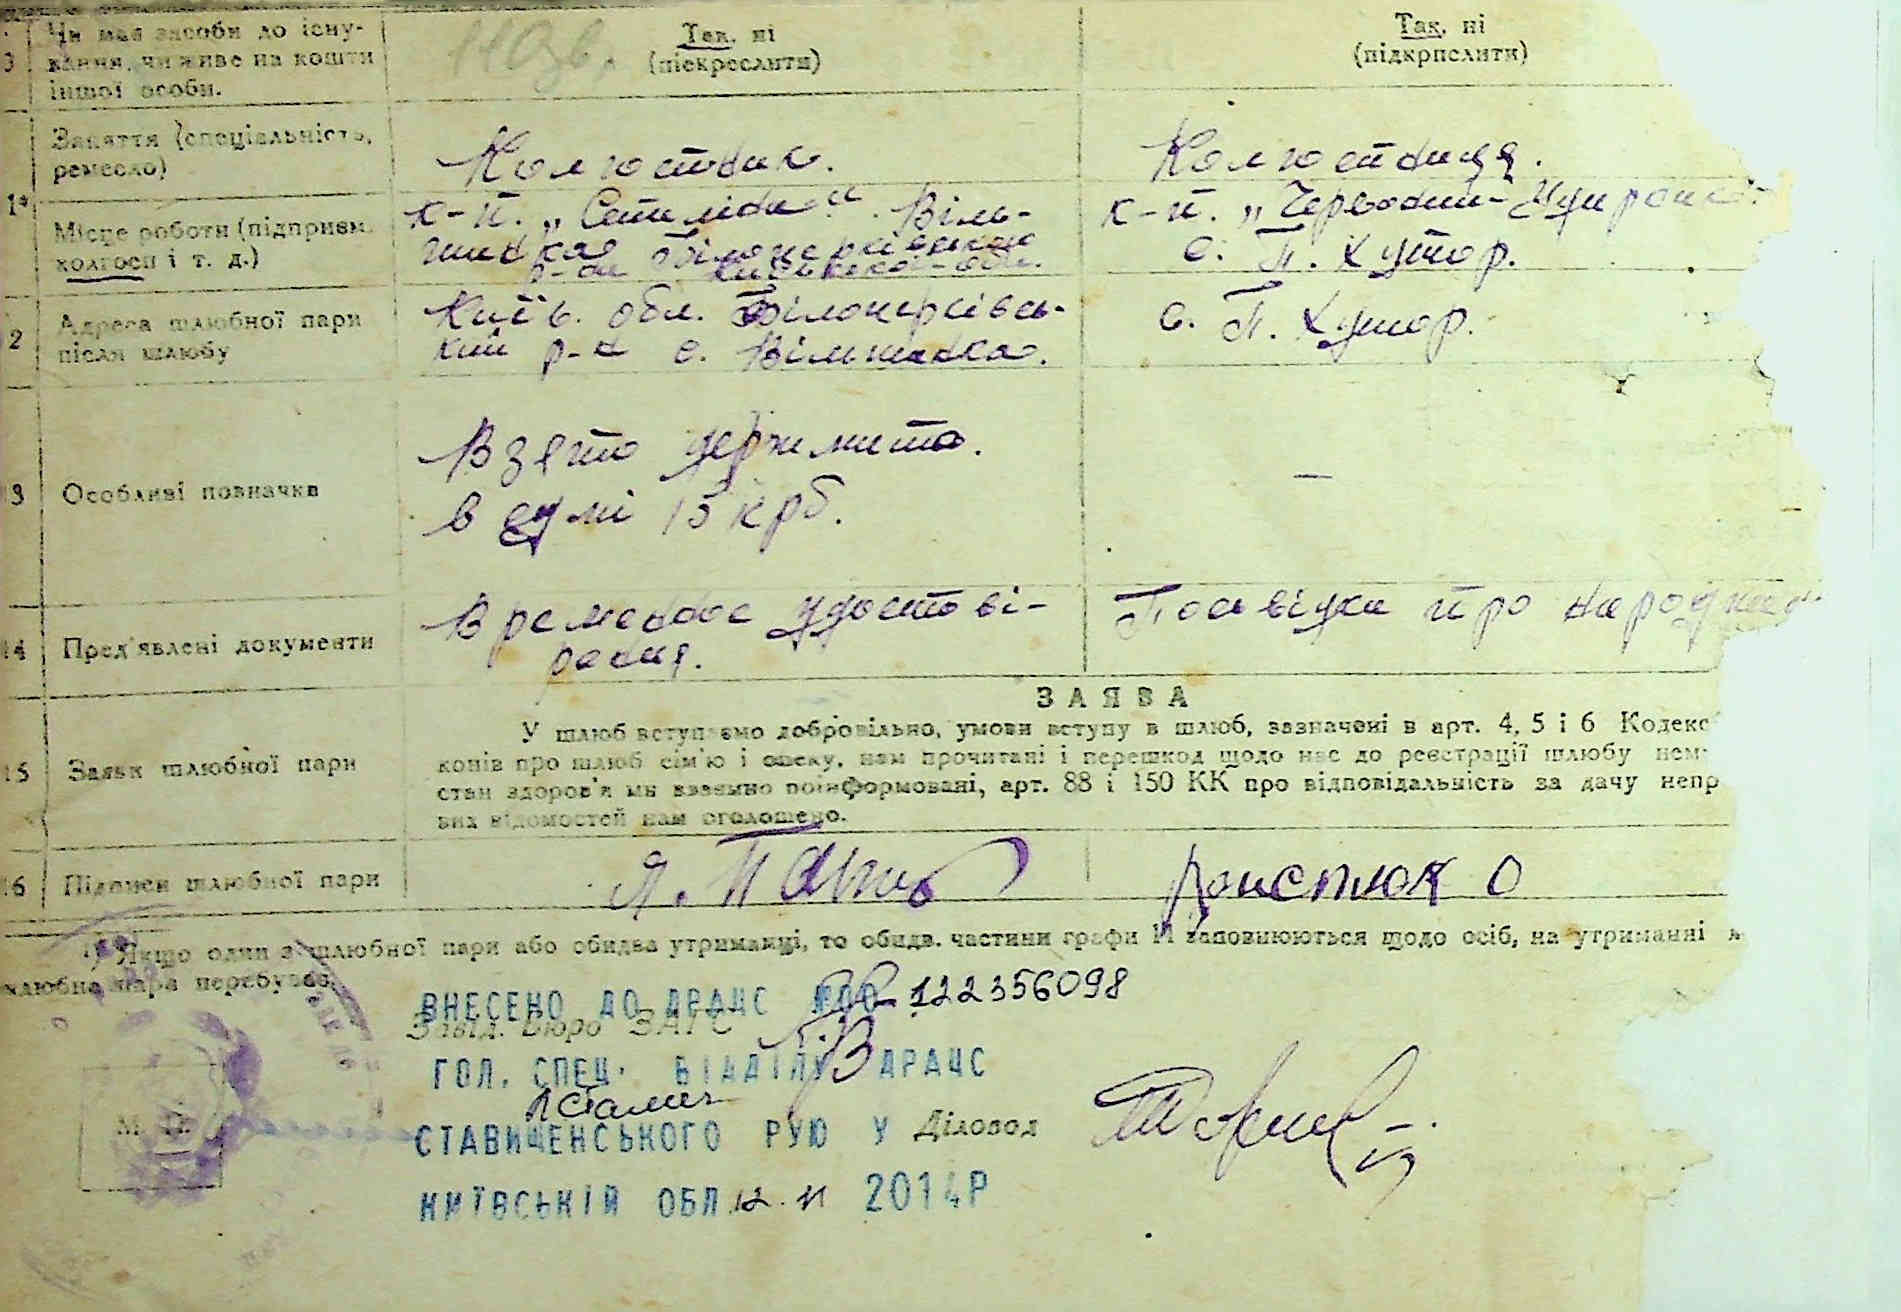 3 Чи має засоби до існу-
вання, чи живе на кошти
іншої особи.
Так, ні
(підкреслити)
Так, ні
(підкрпслити)
Заняття (спеціальність,
ремесло)
Колгоспник.
Колгоспниця.
Місце роботи (підприєм.
колгосп і т. д.)
к-п. „Сталіна". Віль-
шанка Білоцерківського
р-ну Київської обл.
к-п. „Червоний-
с. П. Хутор.
2 Адреса шлюбної пари
після шлюбу
Київ. обл. Білоцерківсь-
кий р-н с. Вільшанка.
с. П. Хутор.
13 Особливі позначки
Взято держмито.
в сумі 15 крб.
—
14 Пред'явлені документи
Временное удостові-
рения.
Посвідка про народжен
15 Заяви шлюбної пари
ЗАЯВА
У шлюб вступаємо добровільно, умови вступу в шлюб, зазначені в арт. 4, 5 і 6 Кодекс
конів про шлюб сім'ю і опеку, нам прочитані і перешкод щодо нас до реєстрації шлюбу нем
стан здоров'я ми взаємно поінформовані, арт. 88 і 150 КК про відповідальність за дачу непр
вих відомостей нам оголошено.
16 Підписи шлюбної пари
Якщо один з шлюбної пари або обидва утриманці, то обидв. частини графи 11 заповнюються щодо осіб, на утриманні
шлюбна пара перебуває.
ВНЕСЕНО ДО ДРАЦС 122356098
Завід. Бюро ЗАГС
ГОЛ. СПЕЦ. ВІДДІЛУ ДРАЦС
СТАВИЩЕНСЬКОГО РУЮ У
Діловод
КИЇВСЬКІЙ ОБЛ 12.11 2014Р
М. П.